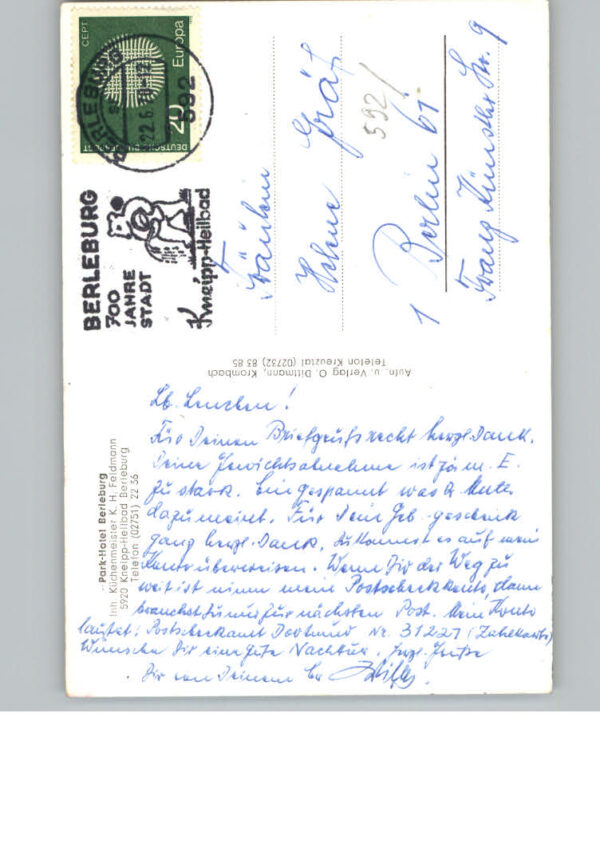 CEPT
Europa
20
DEUTSCHE BUNDESPOST
BERLEBURG
592
BERLEBURG
700
JAHRE
STADT
Kneipp-Heilbad
Fräulein
Helene Gräf
592/
1 Berlin 61
Franz Künstler Str. 9
Aufn. u. Verlag O. Dittmann, Krombach
Telefon Kreuztal (02732) 83 85
Park-Hotel Berleburg
Inh. Küchenmeister K. H. Feldmann
5920 Kneipp-Heilbad Berleburg
Telefon (02751) 22 56
Lb. Lenchen!
Für Deinen Briefgruß recht herzl. Dank.
Deine Gewichtsabnahme ist ja m. E.
zu stark. Bin gespannt was
dazu meint. Für Dein Geb.-geschenk
ganz herzl. Dank, Du kannst es auf mein
Konto überweisen. Wenn Dir der Weg zu
weit ist nimm mein Postscheckkonto, dann
brauchst Du nur zur nächsten Post. Mein Konto
lautet: Postscheckamt Dortmund Nr. 31227 (Zahlkarte)
Wünsche Dir eine gute Nachkur. Herzl. Grüße
Dir von Deinem